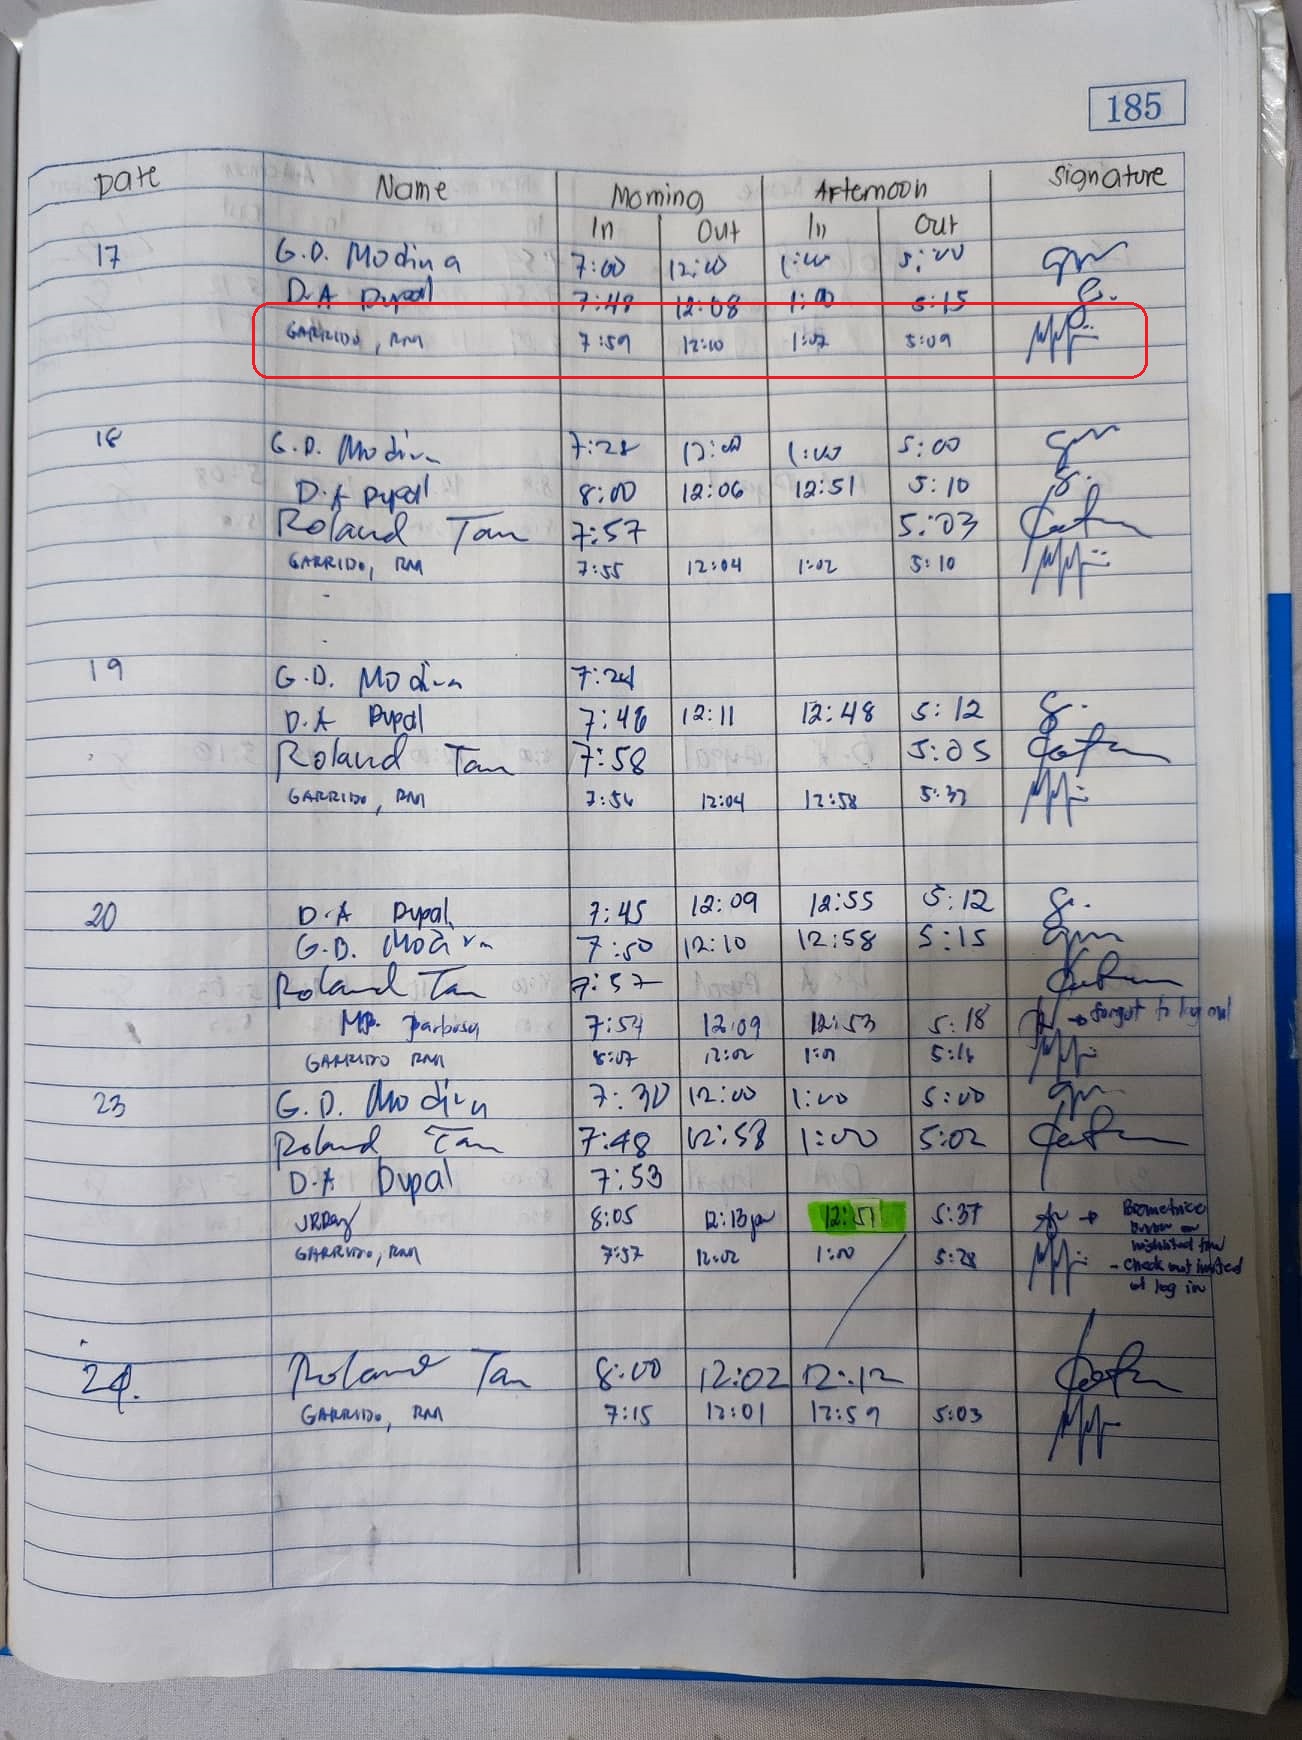 185
Date Name Morning Afternoon Signature
In Out In Out
17 G.D. Modina 7:00 12:00 1:00 5:00
D.A Dupal 7:48 12:08 1:00 5:15
GARRIDO, RM 7:59 12:10 1:07 5:09
18 G.D. Modina 7:28 12:00 1:00 5:00
D.A Dupal 8:00 12:06 12:51 5:10
Roland Tan 7:57 5:03
GARRIDO, RM 7:55 12:04 1:02 5:10
19 G.D. Modina 7:24
D.A Dupal 7:46 12:11 12:48 5:12
Roland Tan 7:58 5:05
GARRIDO, RM 7:56 12:04 12:58 5:37
20 D.A Dupal 7:45 12:09 12:55 5:12
G.D. Modina 7:50 12:10 12:58 5:15
Roland Tan 7:57
MP. Barbosa 7:54 12:09 12:53 5:18 → forgot to log out
GARRIDO RM 8:07 12:02 1:01 5:16
23 G.D. Modina 7:30 12:00 1:00 5:00
Roland Tan 7:48 12:58 1:00 5:02
D.A Dupal 7:53
8:05 12:13pm 12:51 5:37 → Biometrics
GARRIDO, RM 7:57 12:02 1:00 5:28
- check out instead
of log in
24. Roland Tan 8:00 12:02 12:12
GARRIDO, RM 7:15 12:01 12:59 5:03